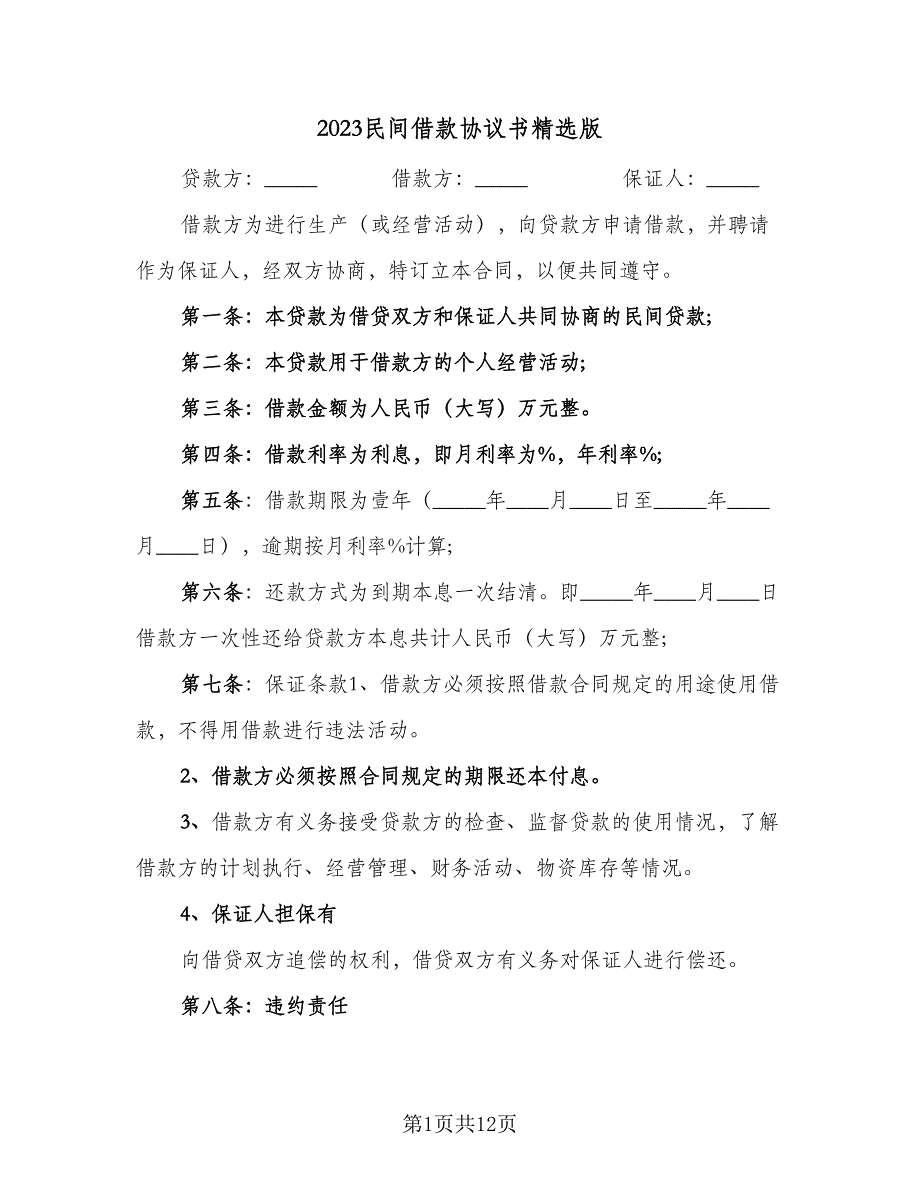 2023民间借款协议书精选版
贷款方：_____ 借款方：_____ 保证人：_____
借款方为进行生产（或经营活动），向贷款方申请借款，并聘请
作为保证人，经双方协商，特订立本合同，以便共同遵守。
第一条：本贷款为借贷双方和保证人共同协商的民间贷款;
第二条：本贷款用于借款方的个人经营活动;
第三条：借款金额为人民币（大写）万元整。
第四条：借款利率为利息，即月利率为%，年利率%;
第五条：借款期限为壹年（_____年____月____日至_____年____
月____日），逾期按月利率%计算;
第六条：还款方式为到期本息一次结清。即_____年____月____日
借款方一次性还给贷款方本息共计人民币（大写）万元整;
第七条：保证条款1、借款方必须按照借款合同规定的用途使用借
款，不得用借款进行违法活动。
2、借款方必须按照合同规定的期限还本付息。
3、借款方有义务接受贷款方的检查、监督贷款的使用情况，了解
借款方的计划执行、经营管理、财务活动、物资库存等情况。
4、保证人担保有
向借贷双方追偿的权利，借贷双方有义务对保证人进行偿还。
第八条：违约责任
第1页共12页